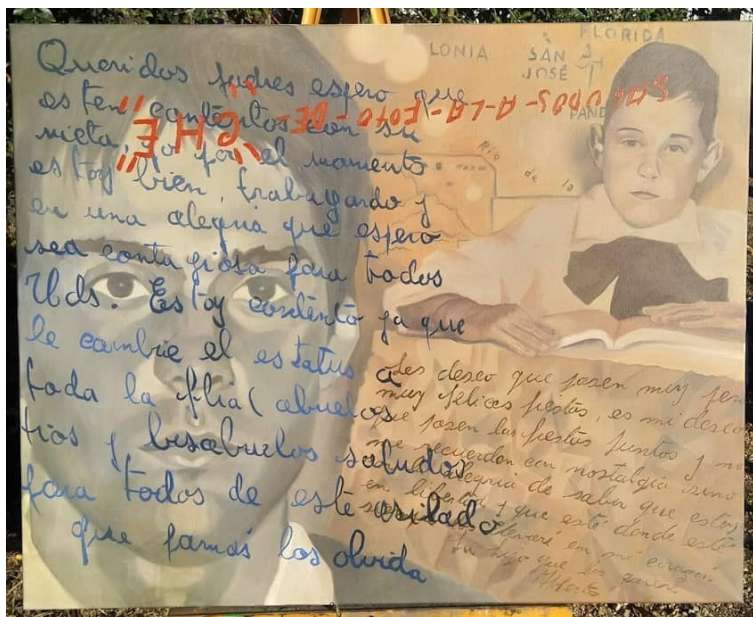 Queridos padres espero que
esten contentos con su
nieta, yo por el momento
estoy bien, trabagando y
en una alegria que espero
sea contagiosa para todos
Uds. Estoy contento ya que
le cambie el estatus a
toda la flia ( abuelos
tios y bisabuelos saludos
para todos de este exilado
que jamás los olvida
SALUDOS-A-LA-FOTO-DE-
"CHE"
LONIA
SAN
JOSÉ
FLORIDA
PAND
Río de la
Les deseo que pasen muy
muy felices fiestas, es mi deseo
que pasen las fiestas juntos y no
me recuerden con nostalgia sino
alegria de saber que estoy
en libertad y que esté donde esté
llevaré en mi corazón
hijo que los